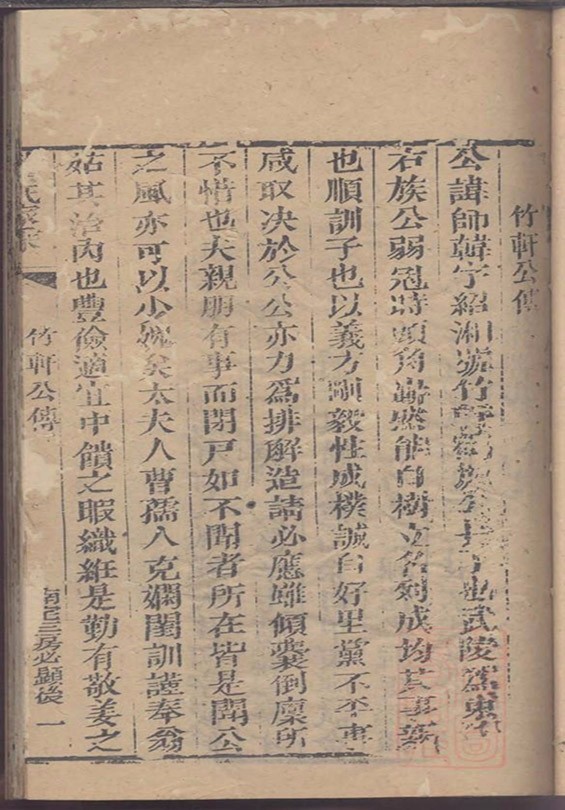 竹軒公傳
公諱師韓字紹湘號竹軒公長子也武陵為東
右族公弱冠時頭角嶄然能自樹立名列成均其事親
也順訓子也以義方剛毅性成樸誠自好里黨不平事
咸取决於公公亦力為排解造請必應雖傾囊倒廩所
不惜也夫親朋有事而閉戸如不聞者所在皆是聞公
之風亦可以少媿矣太夫人曹孺人克嫻閨訓謹奉翁
姑其治內也豐儉適宜中饋之暇織絍是勤有敬姜之
氏家乘
竹軒公傳
三房必顯後 一